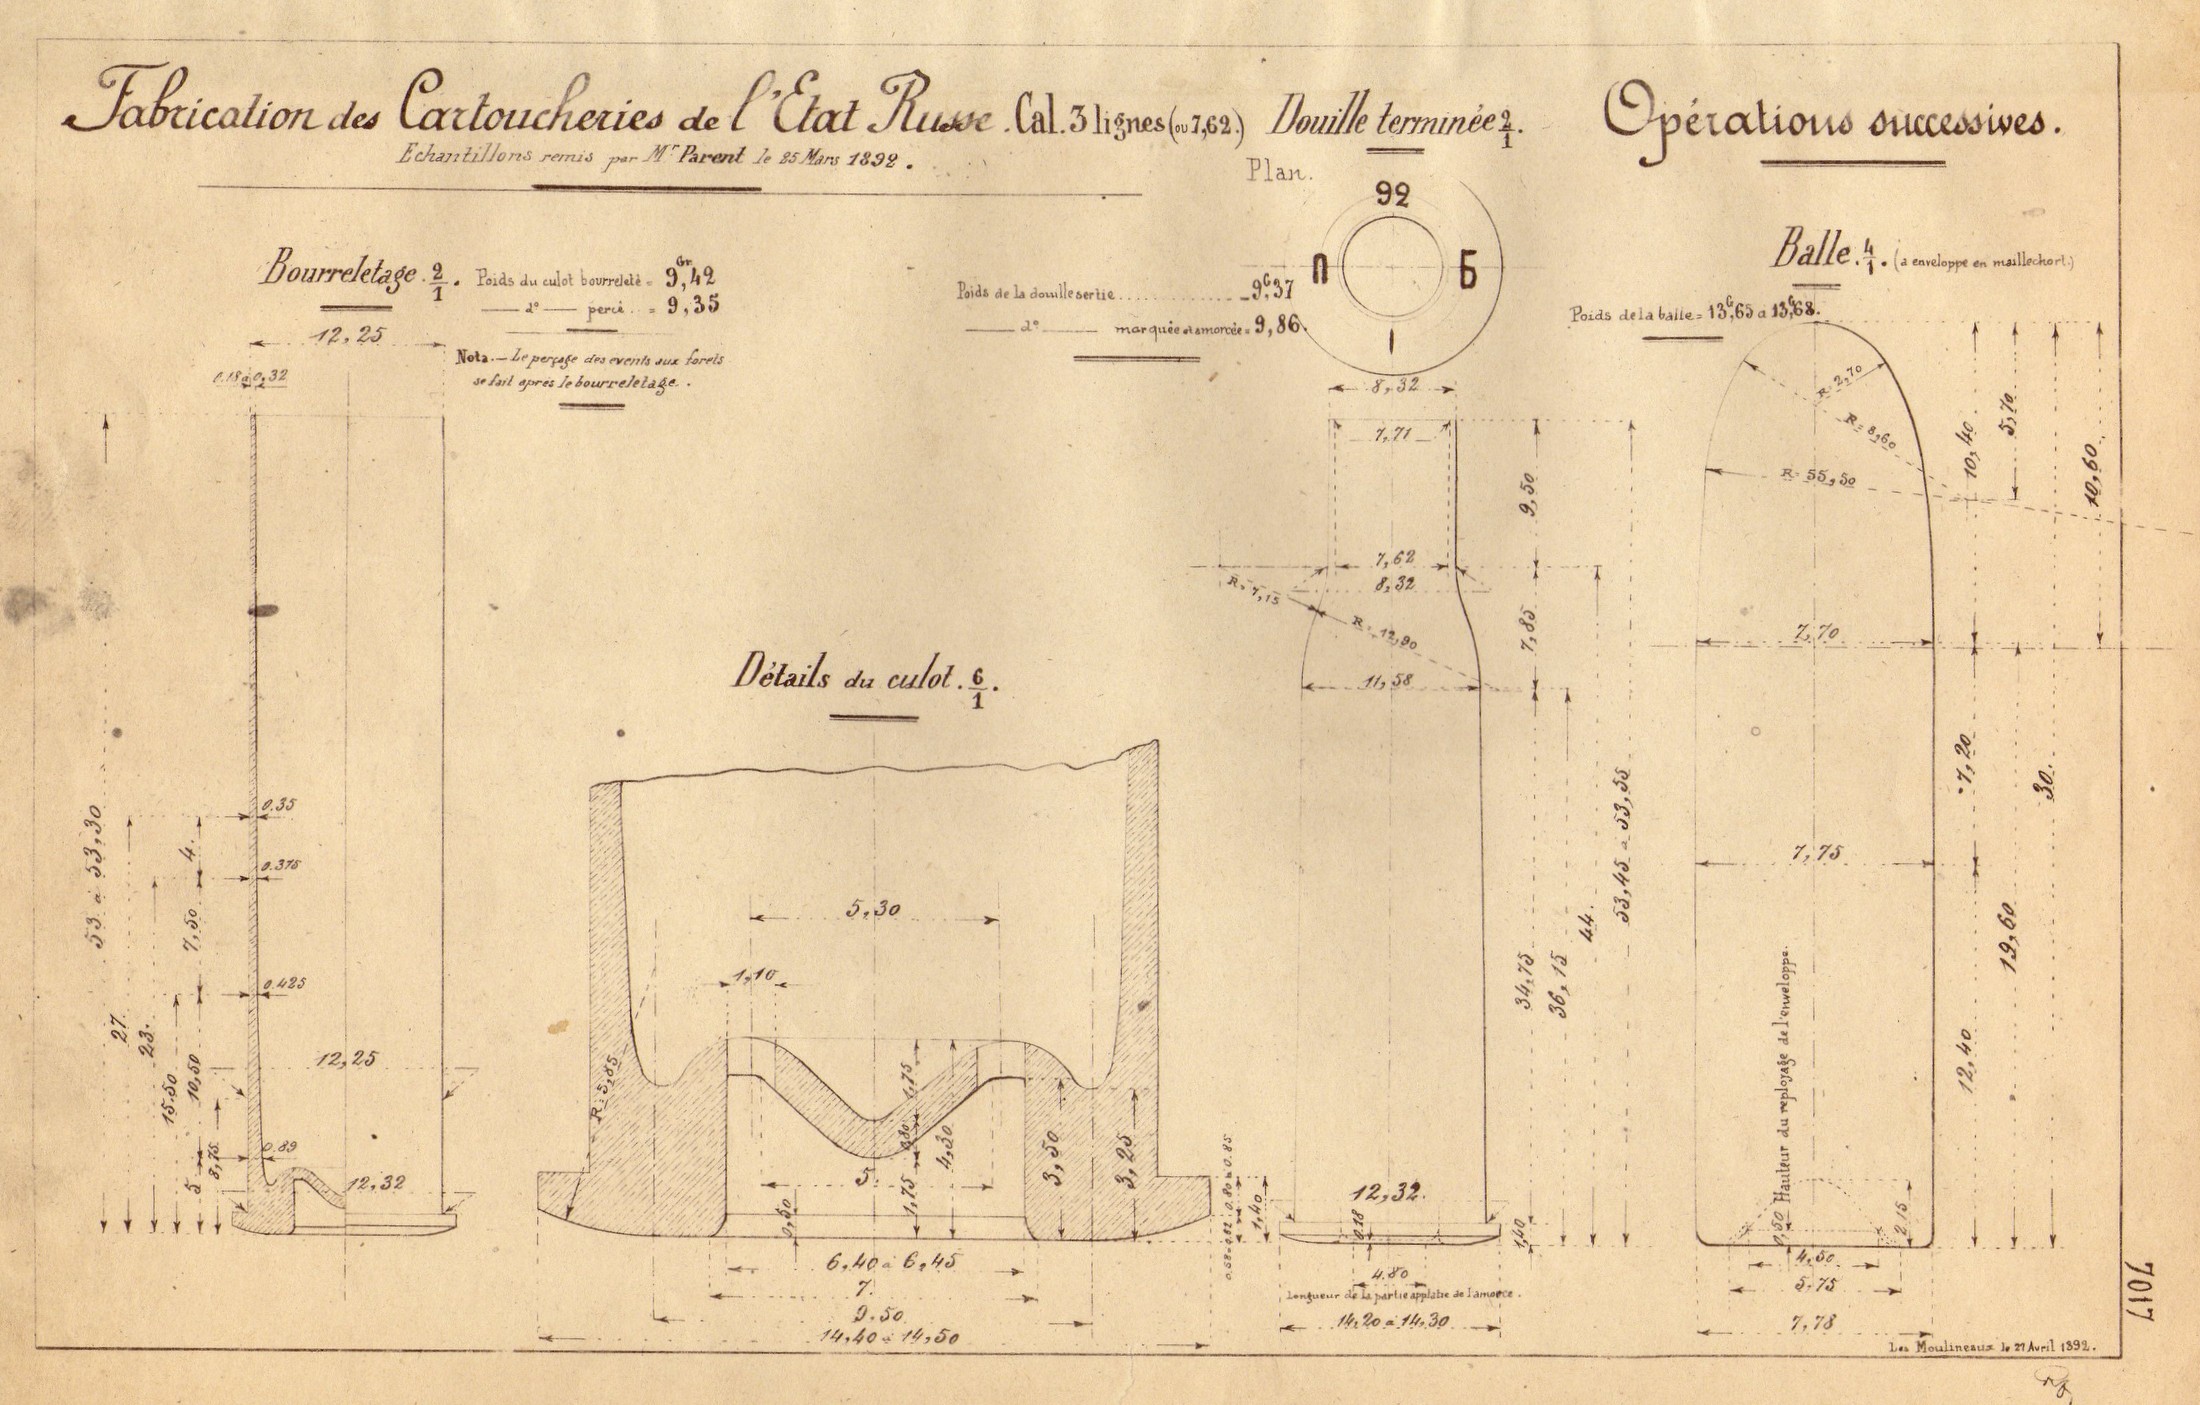 Fabrication des Cartoucheries de l'Etat Russe. Cal. 3 lignes (ou 7,62.) Douille terminée 2/1. Opérations successives.
Echantillons remis par Mr Parent le 25 Mars 1892.
Plan.
92
П Б
I
Bourreletage 2/1.
Poids du culot bourreleté = 9,Gr42
— d° — percé. = 9,35
Nota. — Le perçage des events aux forets
se fait après le bourreletage.
12,25
0.18 à 0,32
53 à 53,30
27
23.
15.50
10,50
7,50
4
5
8,75
0.35
0.375
0.425
0.89
12,25
12,32
Poids de la douille sertie ............ 9,G37
— d° — marquée et amorcée = 9,86
Détails du culot. 6/1.
5,30
1,10
R=5,85
1,75
0,80
4,30
1,75
3,50
3,25
5.
0,50
6,40 à 6,45
7.
9.50
14,40 à 14,50
0,80 à 0.85
1,40
8,32
7,71
7,62
8,32
R=7,15
R=12,90
11,58
9,50
7,85
34,75
36,15
44.
53,45 à 53,55
12,32.
0.18
1,40
4.80
Longueur de la partie applatie de l'amorce.
14,20 à 14,30
Balle. 4/1. (à enveloppe en maillechort.)
Poids de la balle = 13,G65 à 13,G68.
R=2,70
R=8,60
R=55,50
10,40
5,70
10,60
7,70
7,20
30.
7,75
19,60
12,40
0,50 Hauteur du reployage de l'enveloppe.
2,15
4,50
5,75
7,78
Les Moulineaux le 27 Avril 1892.
7017